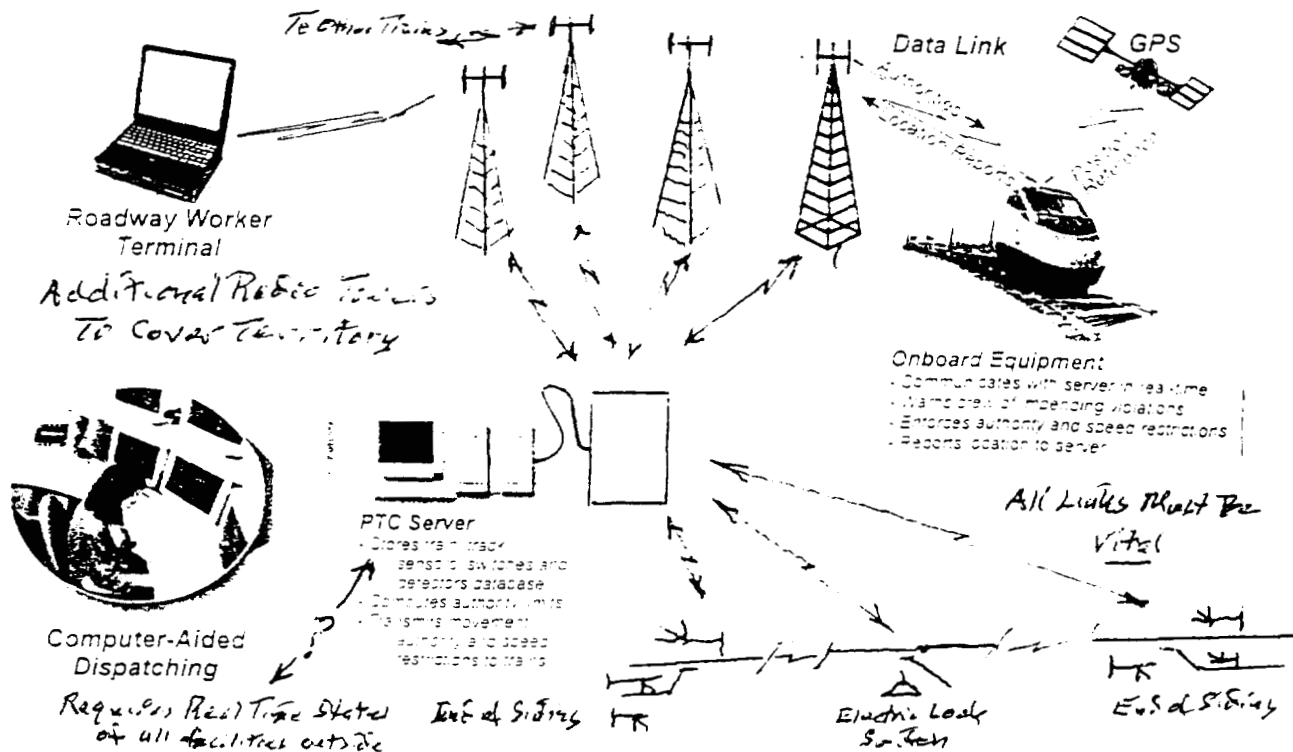 To Other Trains
Data Link
GPS
Authorities
Location Reports
Position
Roadway Worker
Terminal
Additional Radio
To Cover Territory
Onboard Equipment
- Communicates with server in real-time
- Warns crew of impending violations
- Enforces authority and speed restrictions
- Reports location to server
All Links Must Be
Vital
PTC Server
- Stores train, track
sensors, switches and
detectors database
- Computes authority limits
- Transmits movement
authority and speed
restrictions to trains
?
Computer-Aided
Dispatching
Requires Real Time States
of all facilities outside
End of Siding
Electric Lock
Switch
End of Siding